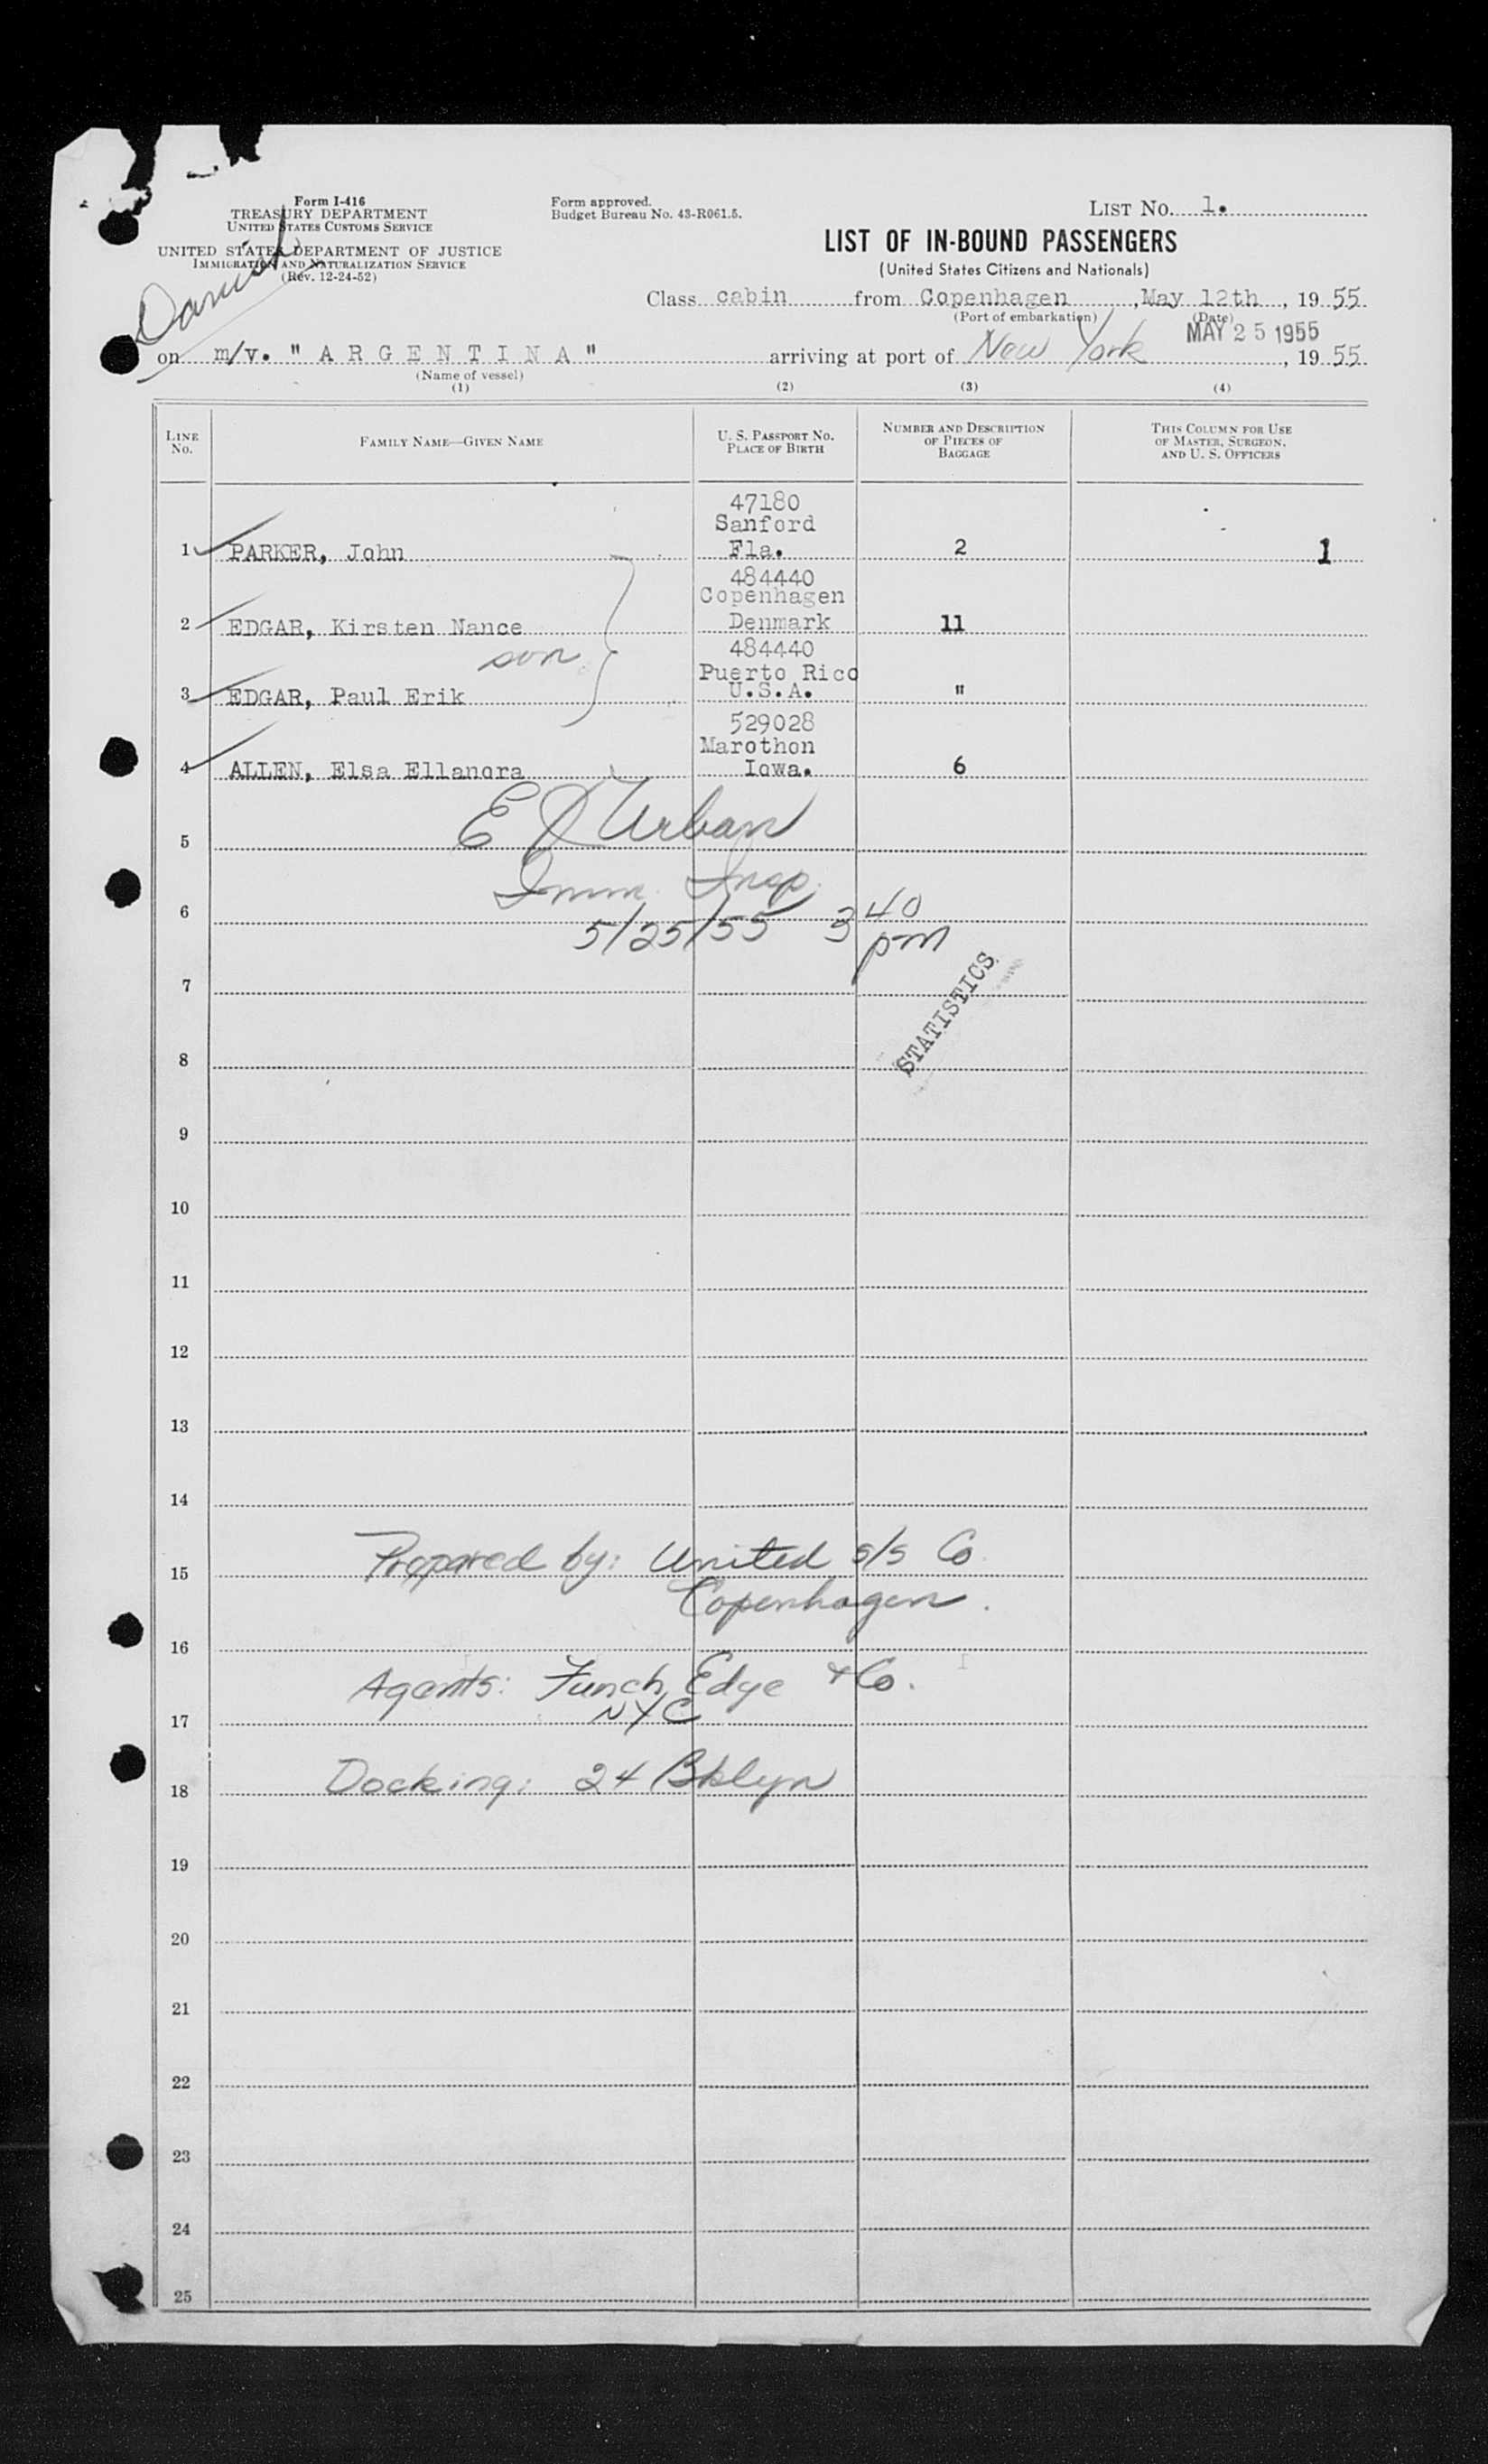 Form I-416
TREASURY DEPARTMENT
UNITED STATES CUSTOMS SERVICE
UNITED STATES DEPARTMENT OF JUSTICE
IMMIGRATION AND NATURALIZATION SERVICE
(Rev. 12-24-52)
Danish
Form approved.
Budget Bureau No. 43-R061.5.
LIST NO. 1.
LIST OF IN-BOUND PASSENGERS
(United States Citizens and Nationals)
Class cabin from Copenhagen, May 12th, 19 55
(Port of embarkation) (Date)
MAY 25 1955
on m/v. " A R G E N T I N A " arriving at port of New York, 19 55
(Name of vessel)
(1) (2) (3) (4)
LINE NO. FAMILY NAME—GIVEN NAME U. S. PASSPORT NO. PLACE OF BIRTH NUMBER AND DESCRIPTION OF PIECES OF BAGGAGE THIS COLUMN FOR USE OF MASTER, SURGEON, AND U. S. OFFICERS
47180
Sanford
1 PARKER, John Fla. 2 1
484440
Copenhagen
2 EDGAR, Kirsten Nance Denmark 11
son
484440
Puerto Rico
3 EDGAR, Paul Erik U.S.A. "
529028
Marothon
4 ALLEN, Elsa Ellanora Iowa. 6
E Urban
5
Imm. Insp.
6
5/25/55 3 40 pm
7
STATISTICS
8
9
10
11
12
13
14
Prepared by: United s/s Co.
15
Copenhagen.
16
Agents: Funch, Edye & Co.
NYC
17
Docking: 24 Bklyn
18
19
20
21
22
23
24
25